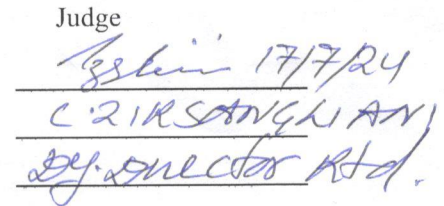 Judge
17/7/24
C. ZIRSANGLIANI
Dy. Director Rtd.